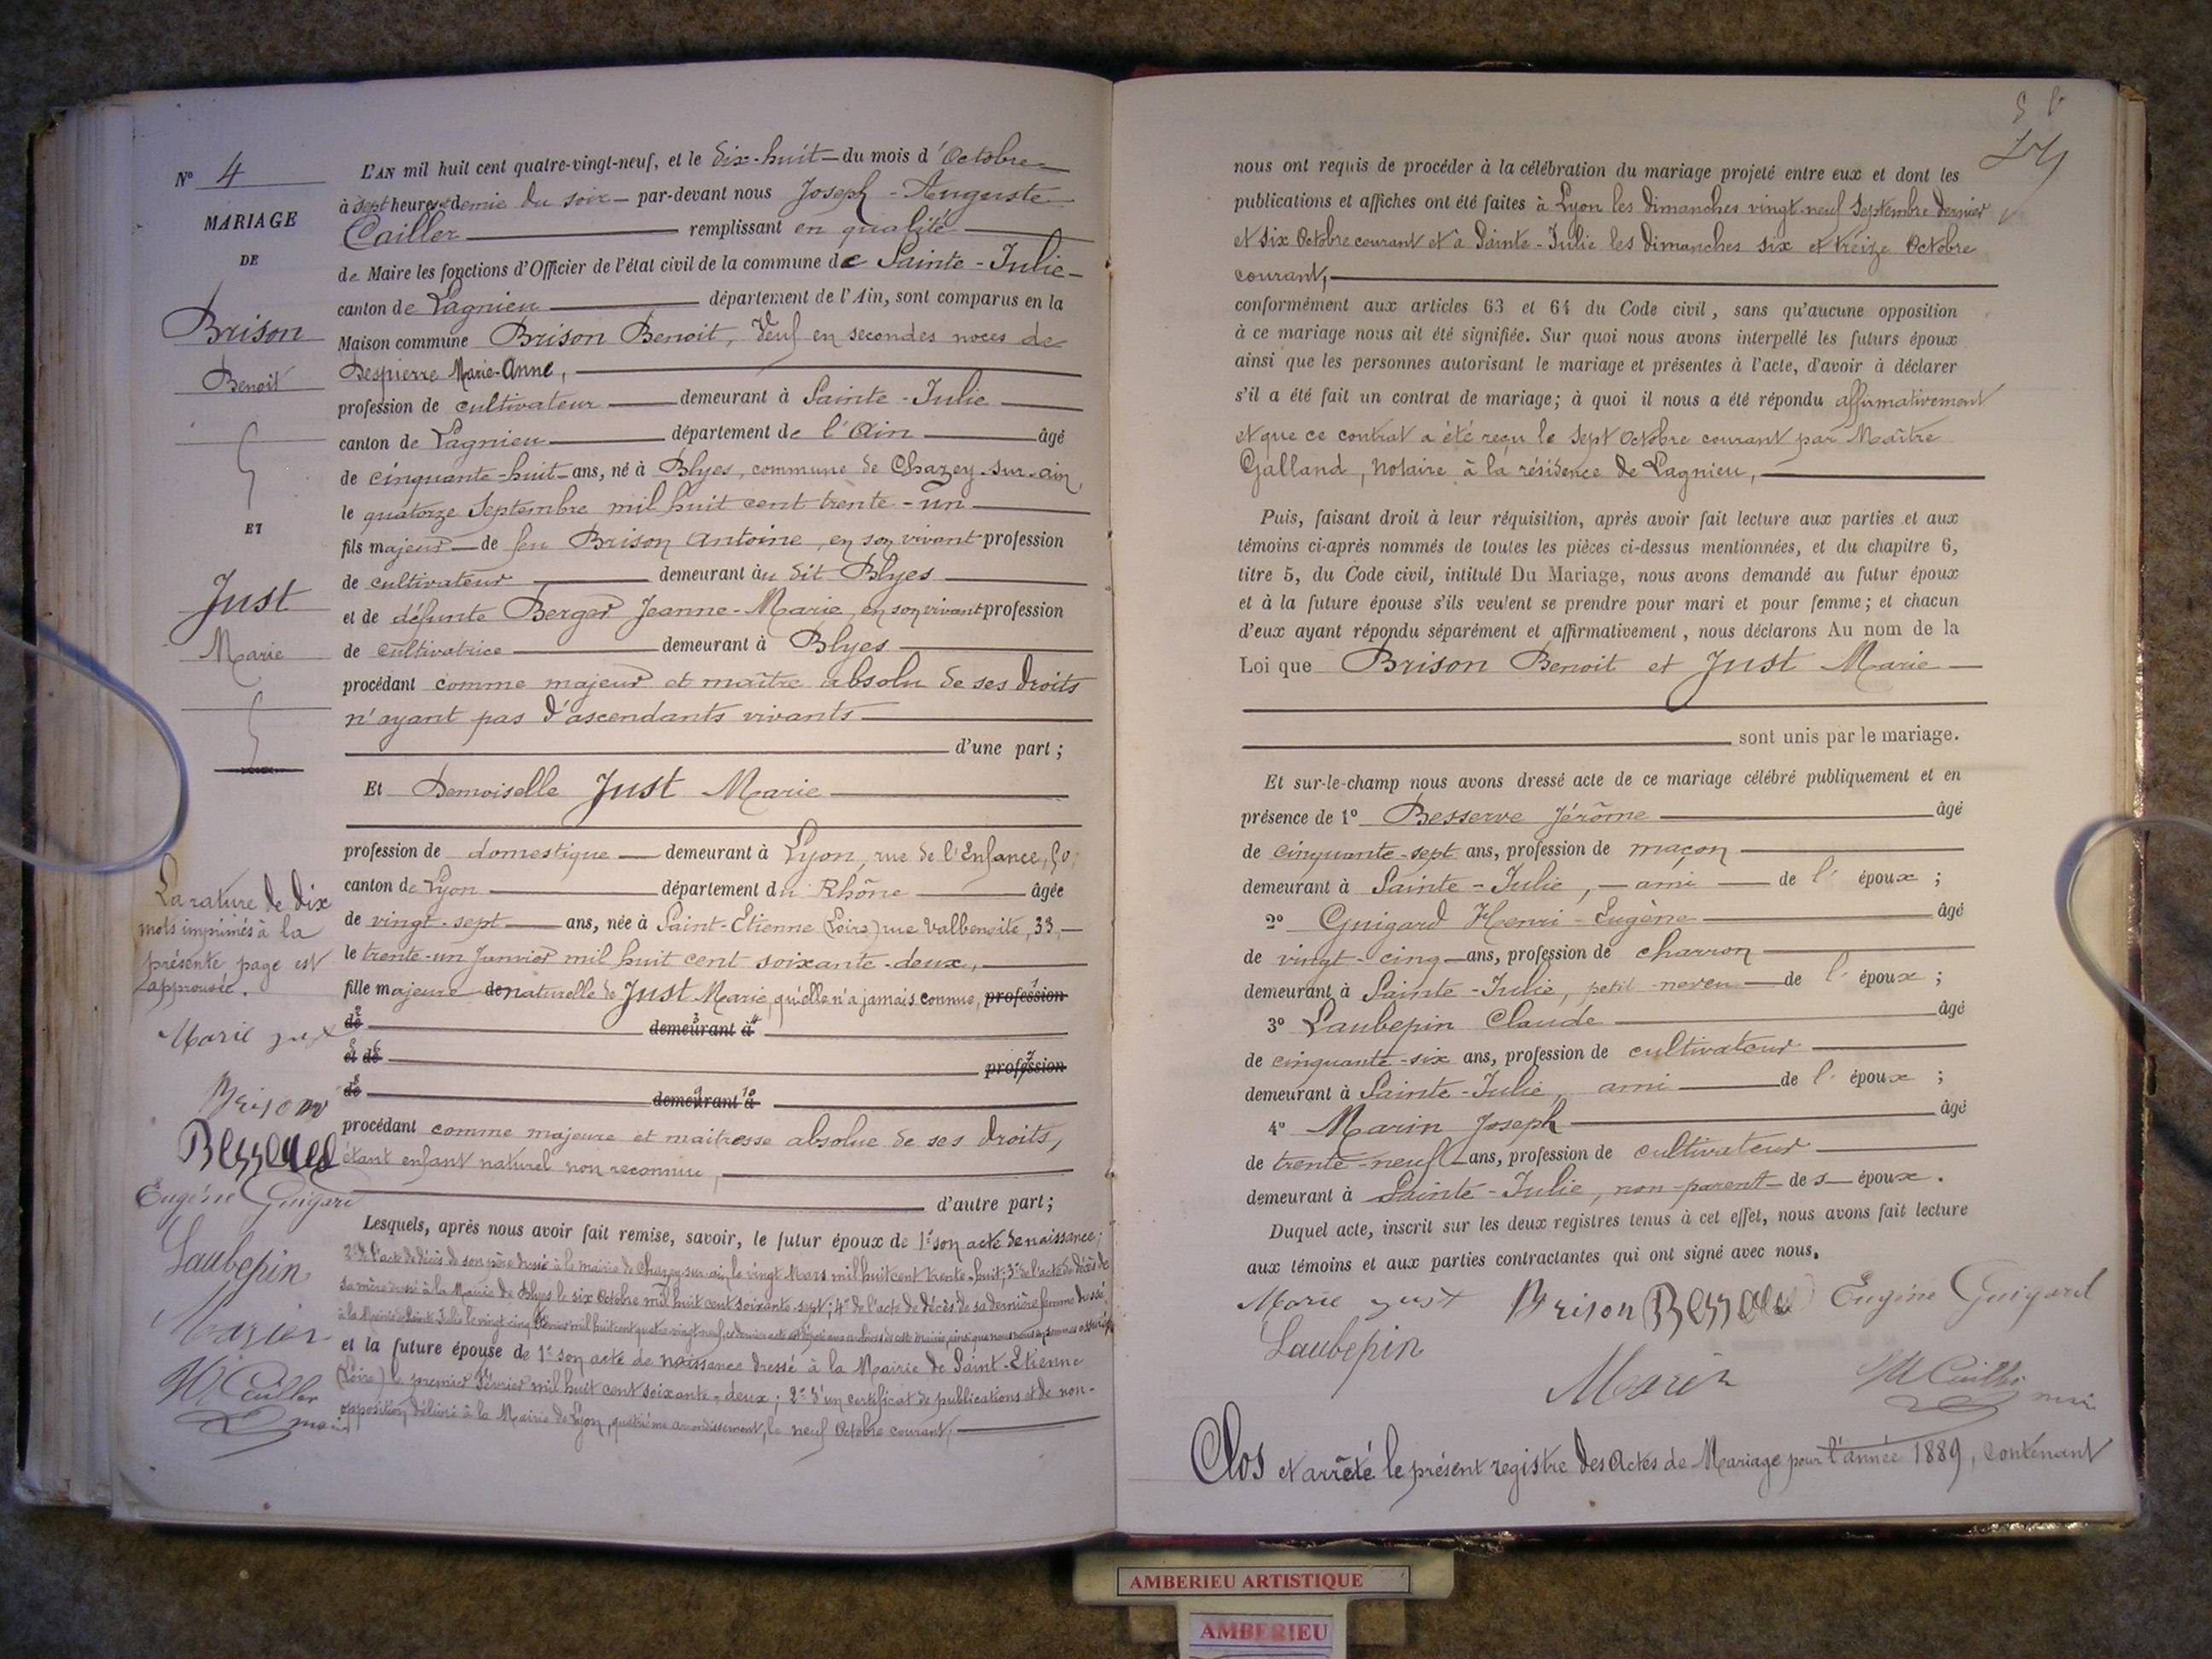 N° 4
MARIAGE
DE
Brison
Benoit
ET
Just
Marie
La rature de dix
mots imprimés à la
présente page est
approuvée.
Marie just
Brison
Besserve
Eugène Guigard
Laubepin
Marin
Cailler
maire
L'AN mil huit cent quatre-vingt-neuf, et le dix-huit du mois d'Octobre
à sept heures et demie du soir par-devant nous Joseph-Auguste
Cailler remplissant en qualité
de Maire les fonctions d'Officier de l'état civil de la commune de Sainte-Julie
canton de Lagnieu département de l'Ain, sont comparus en la
Maison commune Brison Benoit, Veuf en secondes noces de
Despierre Marie-Anne,
profession de cultivateur demeurant à Sainte-Julie
canton de Lagnieu département de l'Ain âgé
de cinquante-huit ans, né à Blyes, commune de Chazey-sur-ain,
le quatorze Septembre mil huit cent trente-un
fils majeur de feu Brison Antoine, en son vivant profession
de cultivateur demeurant au dit Blyes
et de défunte Berger Jeanne-Marie, en son vivant profession
de cultivatrice demeurant à Blyes
procédant comme majeur et maître absolu de ses droits
n'ayant pas d'ascendants vivants
d'une part ;
Et Demoiselle Just Marie
profession de domestique demeurant à Lyon, rue de l'Enfance, 50,
canton de Lyon département du Rhône âgée
de vingt-sept ans, née à Saint-Etienne (Loire) rue Valbenoite, 33,
le trente-un Janvier mil huit cent soixante-deux,
fille majeure de naturelle de Just Marie, qu'elle n'a jamais connue, profession
de demeurant à
et de profession
de demeurant à
procédant comme majeure et maitresse absolue de ses droits,
étant enfant naturel non reconnue,
d'autre part ;
Lesquels, après nous avoir fait remise, savoir, le futur époux de 1° son acte de naissance;
2° de l'acte de décès de son père dressé à la mairie de Chazey-sur-ain, le vingt Mars mil huit cent trente-huit; 3° de l'acte de décès de
sa mère dressé à la Mairie de Blyes le six Octobre mil huit cent soixante-sept; 4° de l'acte de décès de sa dernière femme dressé
à la Mairie de Sainte Julie le vingt cinq mil huit cent quatre-vingt neuf, ce dernier acte déposé aux archives de cette mairie, ainsi que nous nous en sommes assurés,
et la future épouse de 1° son acte de naissance dressé à la Mairie de Saint-Etienne
(Loire) le premier Février mil huit cent soixante-deux; 2° d'un certificat de publications et de non-
opposition délivré à la Mairie de Lyon, quatrième arrondissement, le neuf Octobre courant,
nous ont requis de procéder à la célébration du mariage projeté entre eux et dont les
publications et affiches ont été faites à Lyon les dimanches vingt-neuf Septembre dernier
et six Octobre courant et à Sainte-Julie les dimanches six et treize Octobre
courant,
conformément aux articles 63 et 64 du Code civil, sans qu'aucune opposition
à ce mariage nous ait été signifiée. Sur quoi nous avons interpellé les futurs époux
ainsi que les personnes autorisant le mariage et présentes à l'acte, d'avoir à déclarer
s'il a été fait un contrat de mariage; à quoi il nous a été répondu affirmativement
et que ce contrat a été reçu le Sept Octobre courant par Maître
Galland, Notaire à la résidence de Lagnieu,
Puis, faisant droit à leur réquisition, après avoir fait lecture aux parties et aux
témoins ci-après nommés de toutes les pièces ci-dessus mentionnées, et du chapitre 6,
titre 5, du Code civil, intitulé Du Mariage, nous avons demandé au futur époux
et à la future épouse s'ils veulent se prendre pour mari et pour femme; et chacun
d'eux ayant répondu séparément et affirmativement, nous déclarons Au nom de la
Loi que Brison Benoit et Just Marie
sont unis par le mariage.
Et sur-le-champ nous avons dressé acte de ce mariage célébré publiquement et en
présence de 1° Besserve Jérôme âgé
de cinquante-sept ans, profession de maçon
demeurant à Sainte-Julie, ami de l' époux ;
2° Guigard Henri-Eugène âgé
de vingt-cinq ans, profession de charron
demeurant à Sainte-Julie, petit-neveu de l' époux ;
3° Laubepin Claude âgé
de cinquante-six ans, profession de cultivateur
demeurant à Sainte-Julie, ami de l' époux ;
4° Marin Joseph âgé
de trente-neuf ans, profession de cultivateur
demeurant à Sainte-Julie, non-parent des époux.
Duquel acte, inscrit sur les deux registres tenus à cet effet, nous avons fait lecture
aux témoins et aux parties contractantes qui ont signé avec nous.
Marie just Brison Besserve Eugène Guigard
Laubepin
Marin Cailler maire
Clos et arrêté le présent registre des Actes de Mariage pour l'année 1889, contenant
AMBERIEU ARTISTIQUE
AMBERIEU